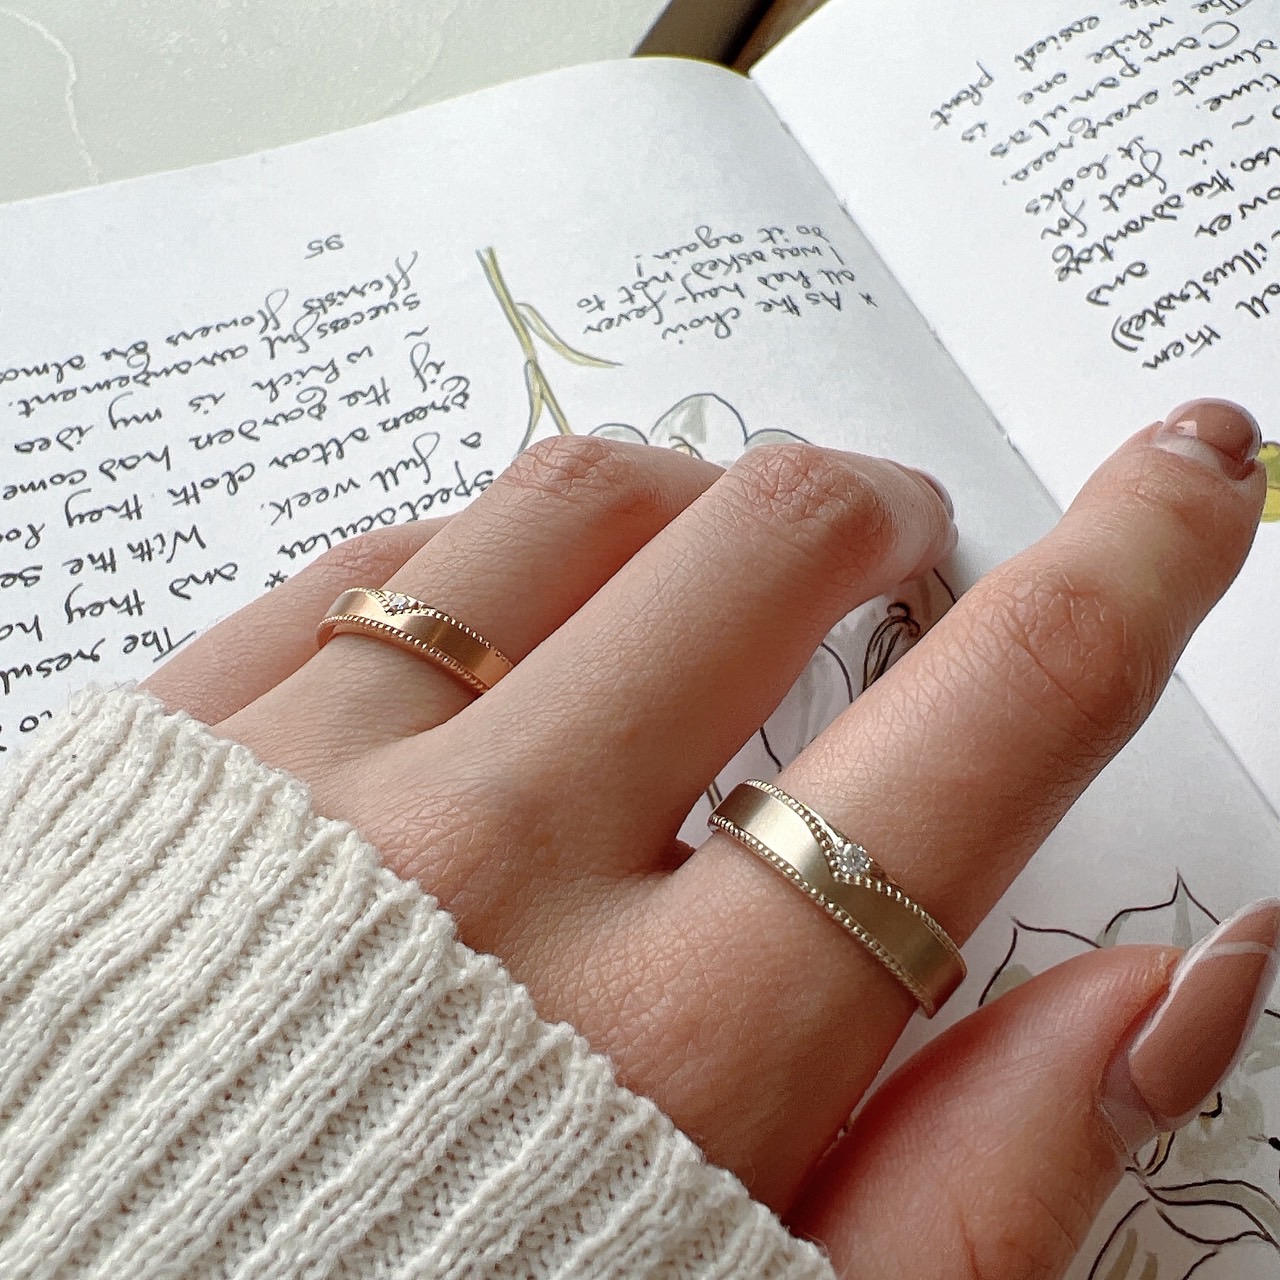 all them
illustrated)
ower and
lso, the advantage
time. ~ in fact for
it looks
almost evergreen.
Campanulas is
The while one
the easiest plant
to
The resul
spectacular * and they ha
a full week. With the se
green altar cloth they loo
if the garden had come
~ which is my idea
successful arrangement.
florists flowers are almos
* As the choir
all had hay-fever
I was asked not to
do it again!
95